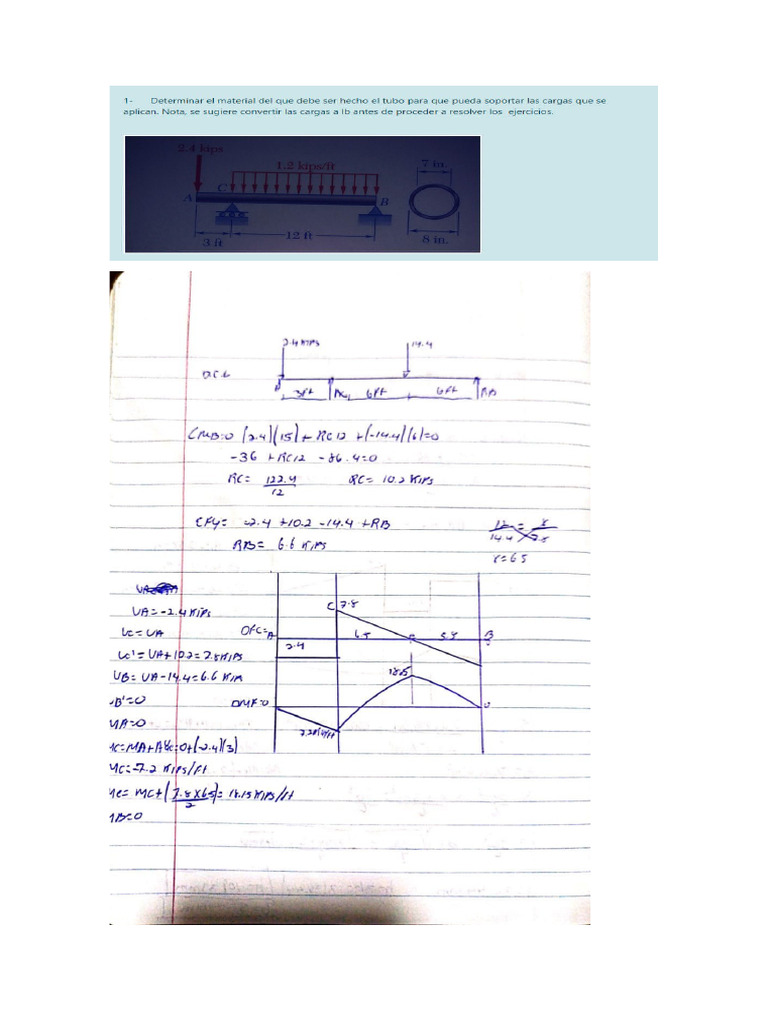 1- Determinar el material del que debe ser hecho el tubo para que pueda soportar las cargas que se
aplican. Nota, se sugiere convertir las cargas a lb antes de proceder a resolver los ejercicios.
2.4 kips
1.2 kips/ft
7 in.
A
C
B
3 ft
12 ft
8 in.
2.4 KIPS
14.4
D.C.L
3ft
RC
6ft
6ft
RB
(2.4)(15) + RC12 + (-14.4)(6)=0
-36 + RC12 - 86.4=0
RC= 122.4
12
RC= 10.2 KIPS
CFY= -2.4 +10.2 -14.4 +RB
RB= 6.6 KIPS
12 = x
14.4 7.8
x=6.5
VA=-2.4 KIPS
VC=VA
VC'=VA+10.2=7.8KIPS
VB=VA-14.4=6.6 KIPS
B'=0
MA=0
MC=-7.2 KIPS/FT
Me= MC+(7.8X6.5)= 18.15KIPS/ft
2
C 7.8
DFC=
A
2.4
6.5
5.5
B
18.15
DMF=0